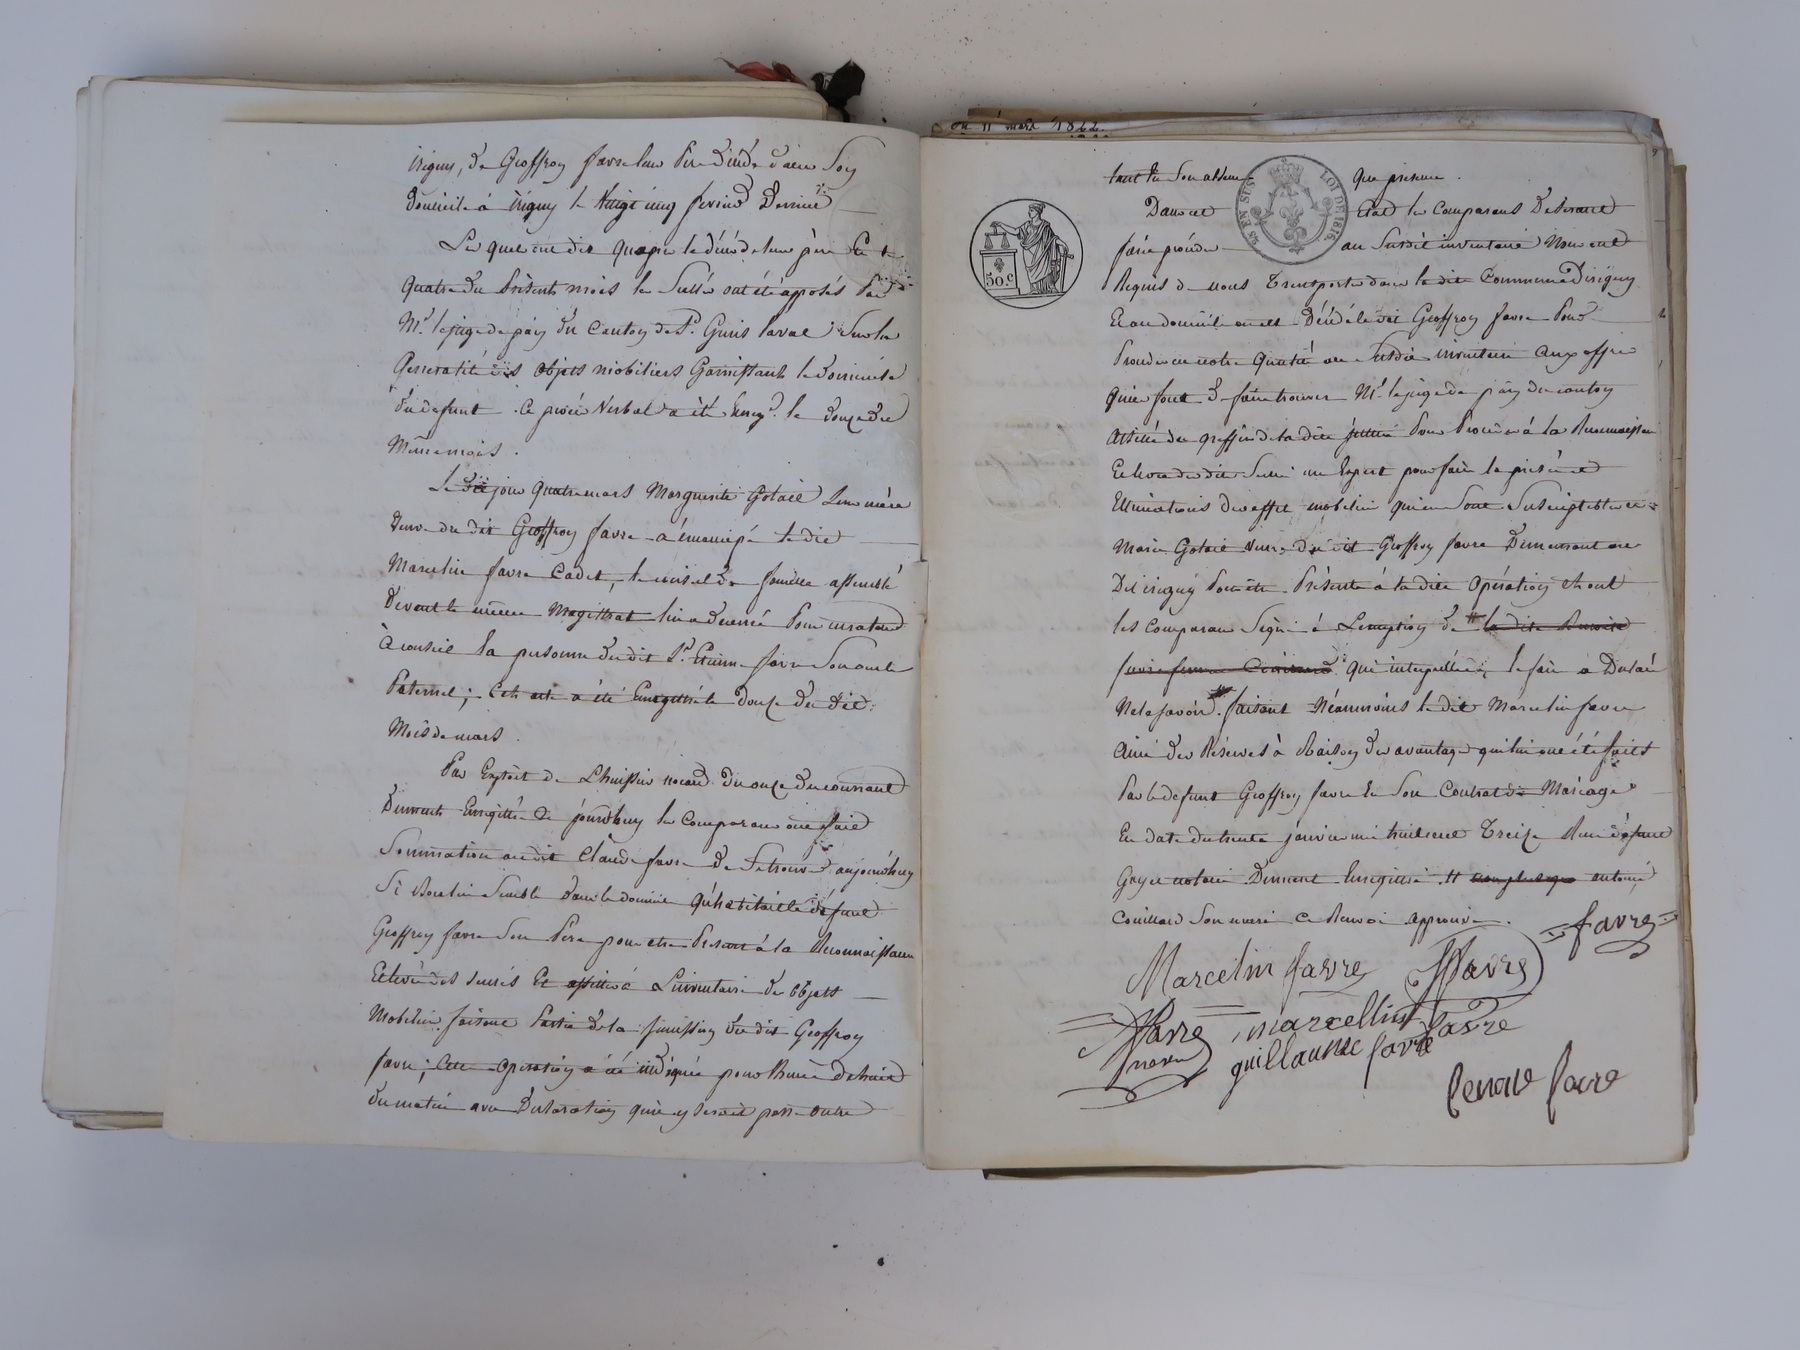 irigny, de Geoffroy favre leur Père décédé dans Son
domicile à irigny le vingt cinq février Dernier
Les quels ont dit qu'après le décès de leur père Le
quatre du Présent mois les Scellés ont été apposés Par
Mr. le juge de paix du Canton de St. Genis laval Sur la
Generalité des objets mobiliers Garnissant le domicile
du defunt. Ce procès Verbal a été Enreg.é le douze du
Même mois.
Le dit jour quatre mars Marguerite Gotail Leur mère
Veuve du dit Geoffroy favre a émancipé le dit
Marcelin favre Cadet, le conseil de famille assemblé
Devant le même Magistrat lui a donné Pour curateur
à conseil la personne du dit St. Etienne favre Son oncle
Paternel; Cet acte a été Enregistré le douze du dit
Mois de mars.
Par Exploit de L'huissier du onze du courant
Dument Enregistré de jourdhuy les Comparans ont fait
Sommation au dit Claude favre de Se trouver aujourdhuy
Si Bon lui Semble dans le domicile qu'habitait le défunt
Geoffroy favre Son Père pour etre Présent à la Reconnaissance
Et levée des scellés Et assister à L'inventaire des objets
Mobiliers faisant Partie de la Succession du dit Geoffroy
favre; cette opération a été indiquée pour l'heure de huit
du matin avec Déclaration qu'il y Seroit passé outre
du 11 mars 1822
tant en Son absence que présence.
Dans cet Etat les Comparans Desirant
faire procéder au Susdit inventaire Nous ont
Requis de nous Transporter dans la dite Commune D'irigny
Et au domicile où est Décédé le dit Geoffroy favre Pour
Procéder en notre Qualité au Susdit inventaire aux offres
qu'ils font de faire trouver Mr. le juge de paix du canton
assisté du greffier de la dite justice Pour Procéder à la Reconnaissance
Et levée des dits Scellés un Expert pour faire la prisée et
Estimations des effets mobiliers qui en Sont Susceptibles et
Marie Gotail veuve du dit Geoffroy favre Demeurant au
Dit irigny Pour être Présente à la dite opération et ont
les Comparans Signé à L'exception de # la dite Benoite
favre femme Couillard qui interpellée de le faire a Declaré
Ne le Savoir. faisant Néanmoins le dit Marcelin favre
ainé des Réserves à Raison des avantages qui lui ont été faits
Par le defunt Geoffroy favre En Son Contrat de Mariage
En date du trente janvier mil huit cent Treize Reçu
Notaire Dument Enregistré. # antoine
Couillard Son mari Ce Renvoi approuvé.
favre
Marcelin favre
favre
favre
marcellin favre
guillaume favre
favre
50 c
EN SUS
LOI DE 1816.